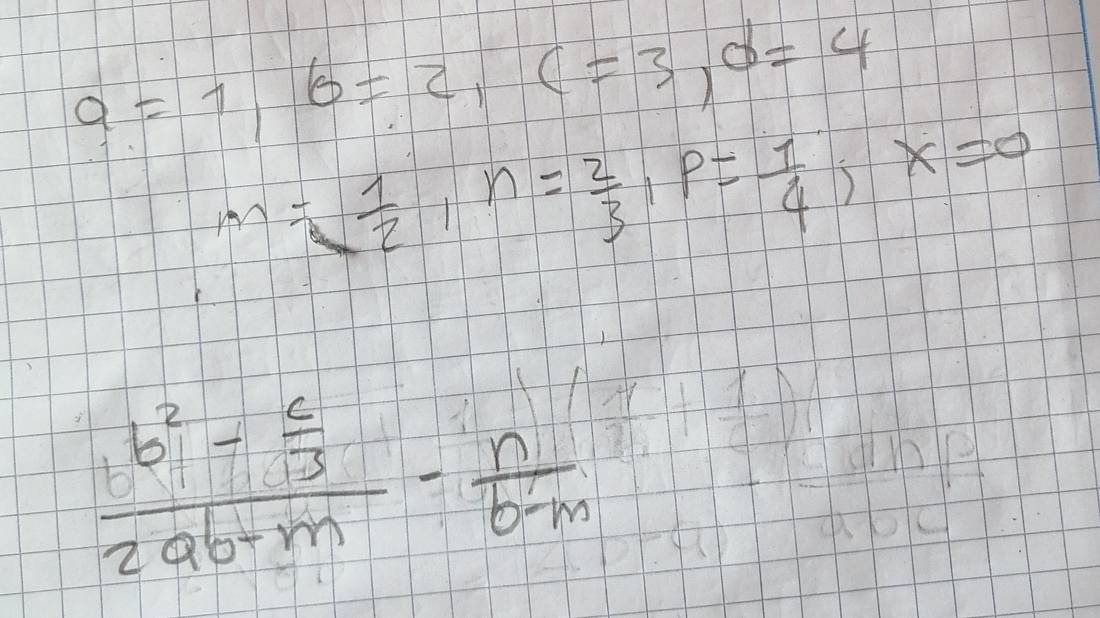 a = 1, b = 2, c = 3, d = 4
m = 1/2, n = 2/3, p = 1/4; x = 0
b² - c/3
2ab - m
- n
b - m